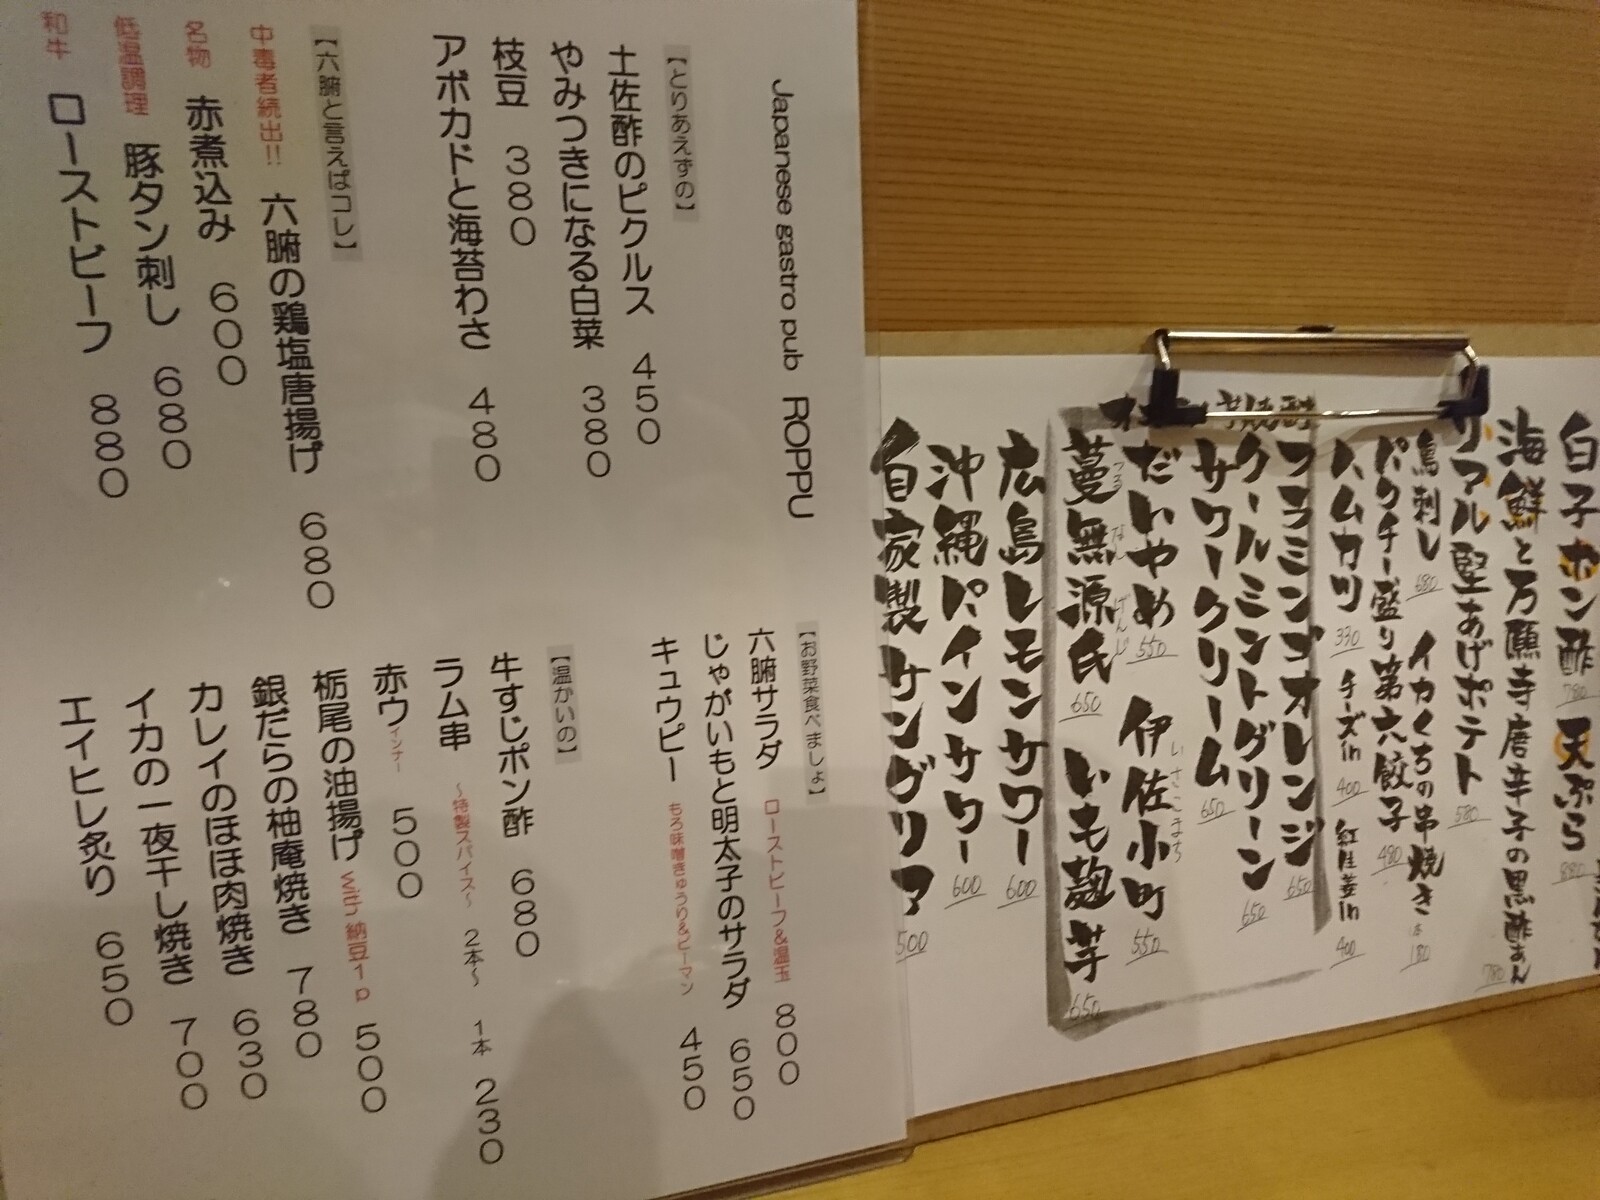 Japanese gastro pub ROPPU
【とりあえずの】
土佐酢のピクルス 450
やみつきになる白菜 380
枝豆 380
アボカドと海苔わさ 480
【六腑と言えばコレ】
中毒者続出!! 六腑の鶏塩唐揚げ 680
名物 赤煮込み 600
低温調理 豚タン刺し 680
和牛 ローストビーフ 880
【お野菜食べましょ】
六腑サラダ ローストビーフ&温玉 800
じゃがいもと明太子のサラダ 650
キュウピー もろ味噌きゅうり&ピーマン 450
【温かいの】
牛すじポン酢 680
ラム串 ～特製スパイス～ 2本～ 1本 230
赤ウインナー 500
栃尾の油揚げ with 納豆1p 500
銀だらの柚庵焼き 780
カレイのほほ肉焼き 630
イカの一夜干し焼き 700
エイヒレ炙り 650
白子ポン酢 780 天ぷら 880
海鮮と万願寺唐辛子の黒酢あん 780
リアル堅あげポテト 580
鳥刺し 680 イカくちの串焼き 1本 180
パクチー盛り第六餃子 480
ハムカツ 330 チーズin 400 紅生姜in 400
フラミンゴオレンジ 650
クールミントグリーン 650
サワークリーム 650
だいやめ 550 伊佐小町 いさこまち 550
蔓無源氏 つるなしげんじ 650 いも麹芋 650
広島レモンサワー 600
沖縄パインサワー 600
自家製サングリア 500